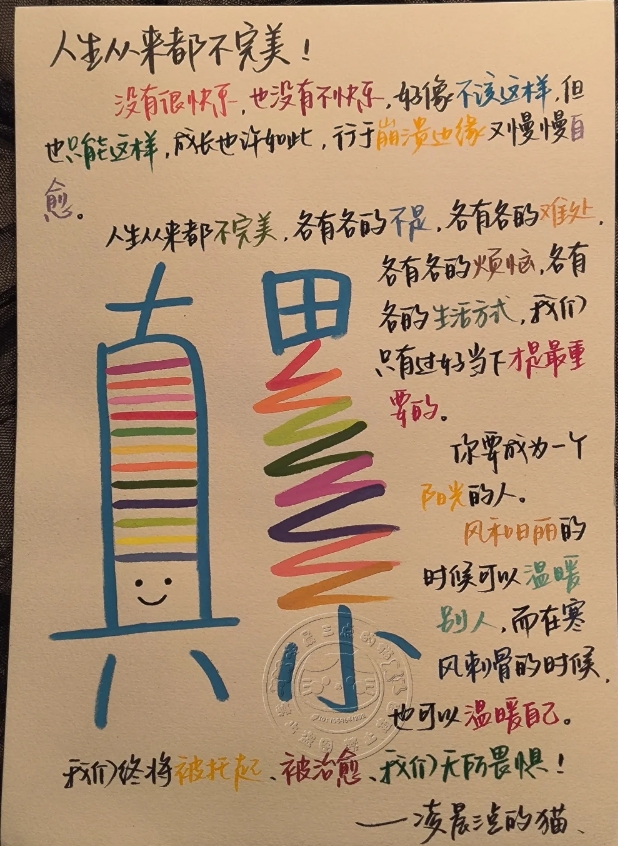 人生从来都不完美！
没有很快乐，也没有不快乐，好像不该这样，但
也只能这样，成长也许如此，行于崩溃边缘又慢慢自
愈。
人生从来都不完美，各有各的不是，各有各的难处，
各有各的烦恼，各有
各的生活方式，我们
只有过好当下才是最重
要的。
你要成为一个
阳光的人。
风和日丽的
时候可以温暖
别人，而在寒
风刺骨的时候，
也可以温暖自己。
真累
我们终将被托起、被治愈、我们无所畏惧！
——凌晨三点的猫、